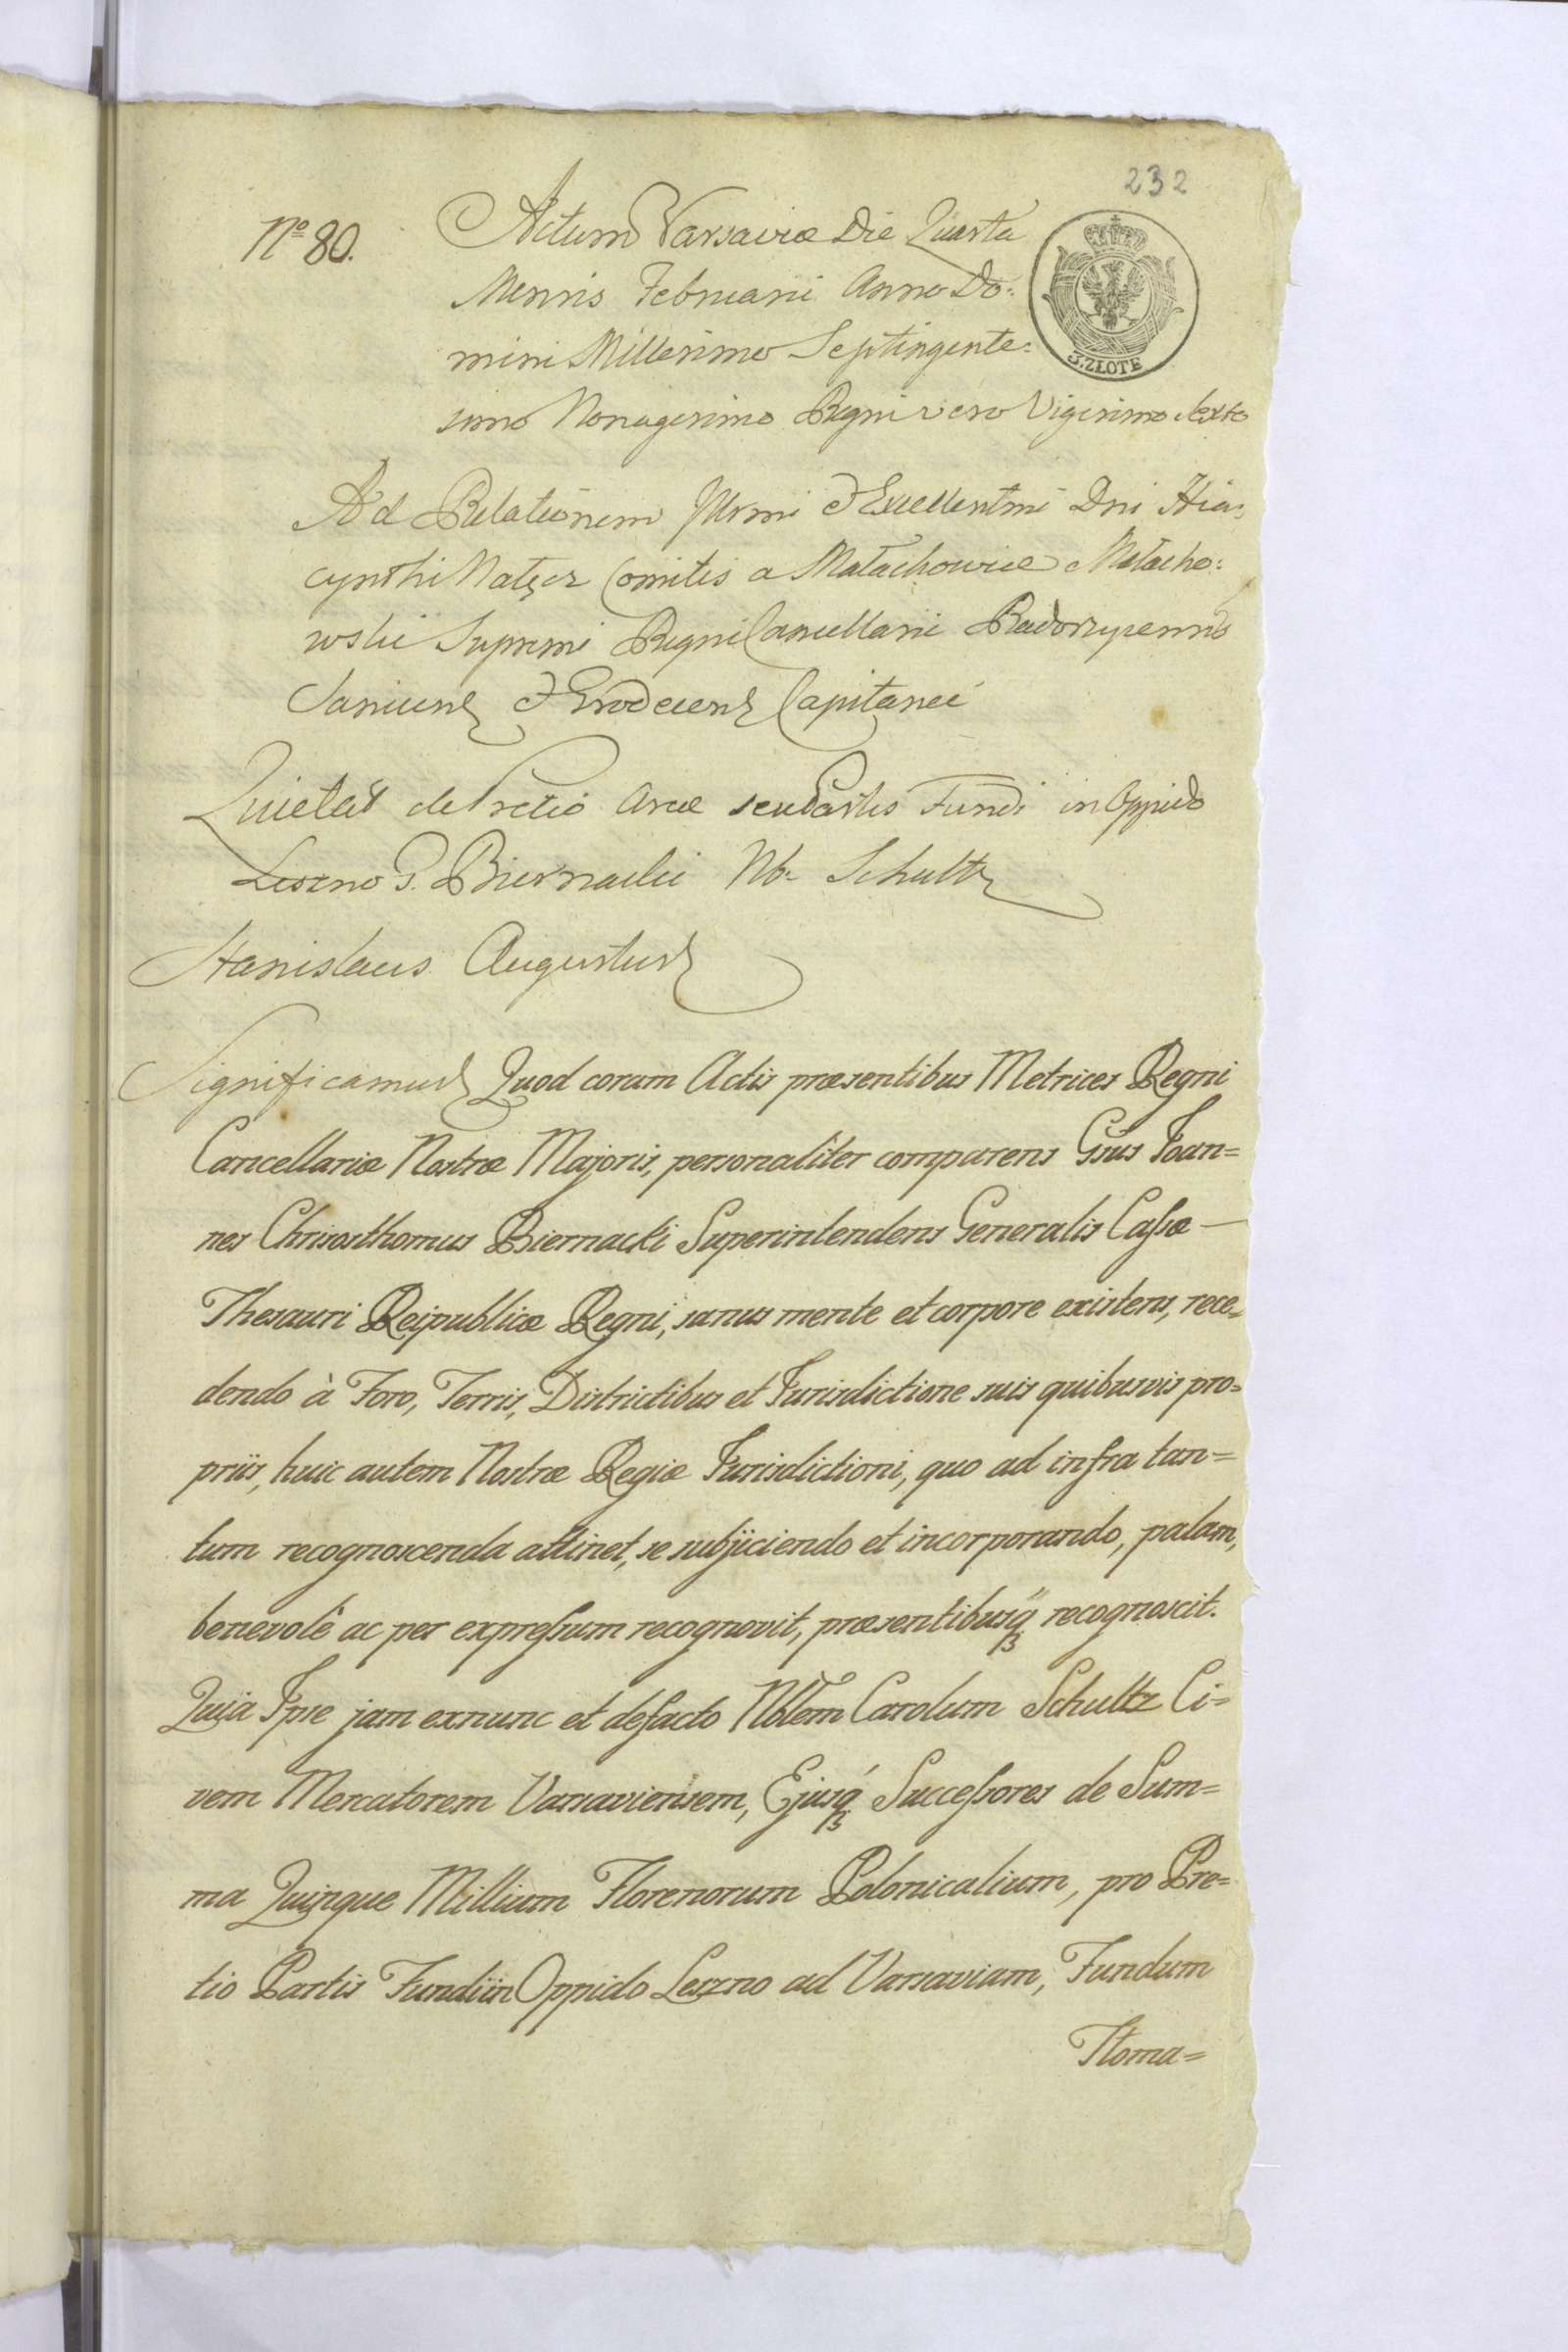 232
Nº 80.
Actum Varsaviæ Die Quarta
Mensis Februarii Anno Do:
mini Millesimo Septingente:
simo Nonagesimo Regni vero Vigesimo sexto
3. ZŁOTE
Ad Relationem Illrmi & Excellentmi Dni Hia:
cynthi Nałęcz Comitis a Małachowice Małacho:
wski Supremi Regni Cancellarii Radoszycensis
& Grodecens Capitanei
Quietat de Pretio Areæ seu Partis Fundi in Oppido
Leszno G. Biernacki Nb. Schultz
Stanislaus Augustus
Significamus Quod coram Actis præsentibus Metrices Regni
Cancellariæ Nostræ Majoris, personaliter comparens Gsus Joan=
nes Chrisosthomus Biernacki Superintendens Generalis Cassæ —
Thesauri Reipublicæ Regni, sanus mente et corpore existens, rece=
dendo à Foro, Terris, Districtibus et Jurisdictione suis quibusvis pro=
priis, huic autem Nostræ Regiæ Jurisdictioni, quo ad infra tan=
tum recognoscenda attinet, se subjiciendo et incorporando, palam,
benevolè ac per expressum recognovit, præsentibusq recognoscit.
Quia Ipse jam exnunc et defacto Nblem Carolum Schultz Ci=
vem Mercatorem Varsaviensem, Ejusq Successores de Sum=
ma Quinque Millium Florenorum Polonicalium, pro Pre=
tio Partis Fundi in Oppido Leszno ad Varsaviam, Fundum
Tłoma=